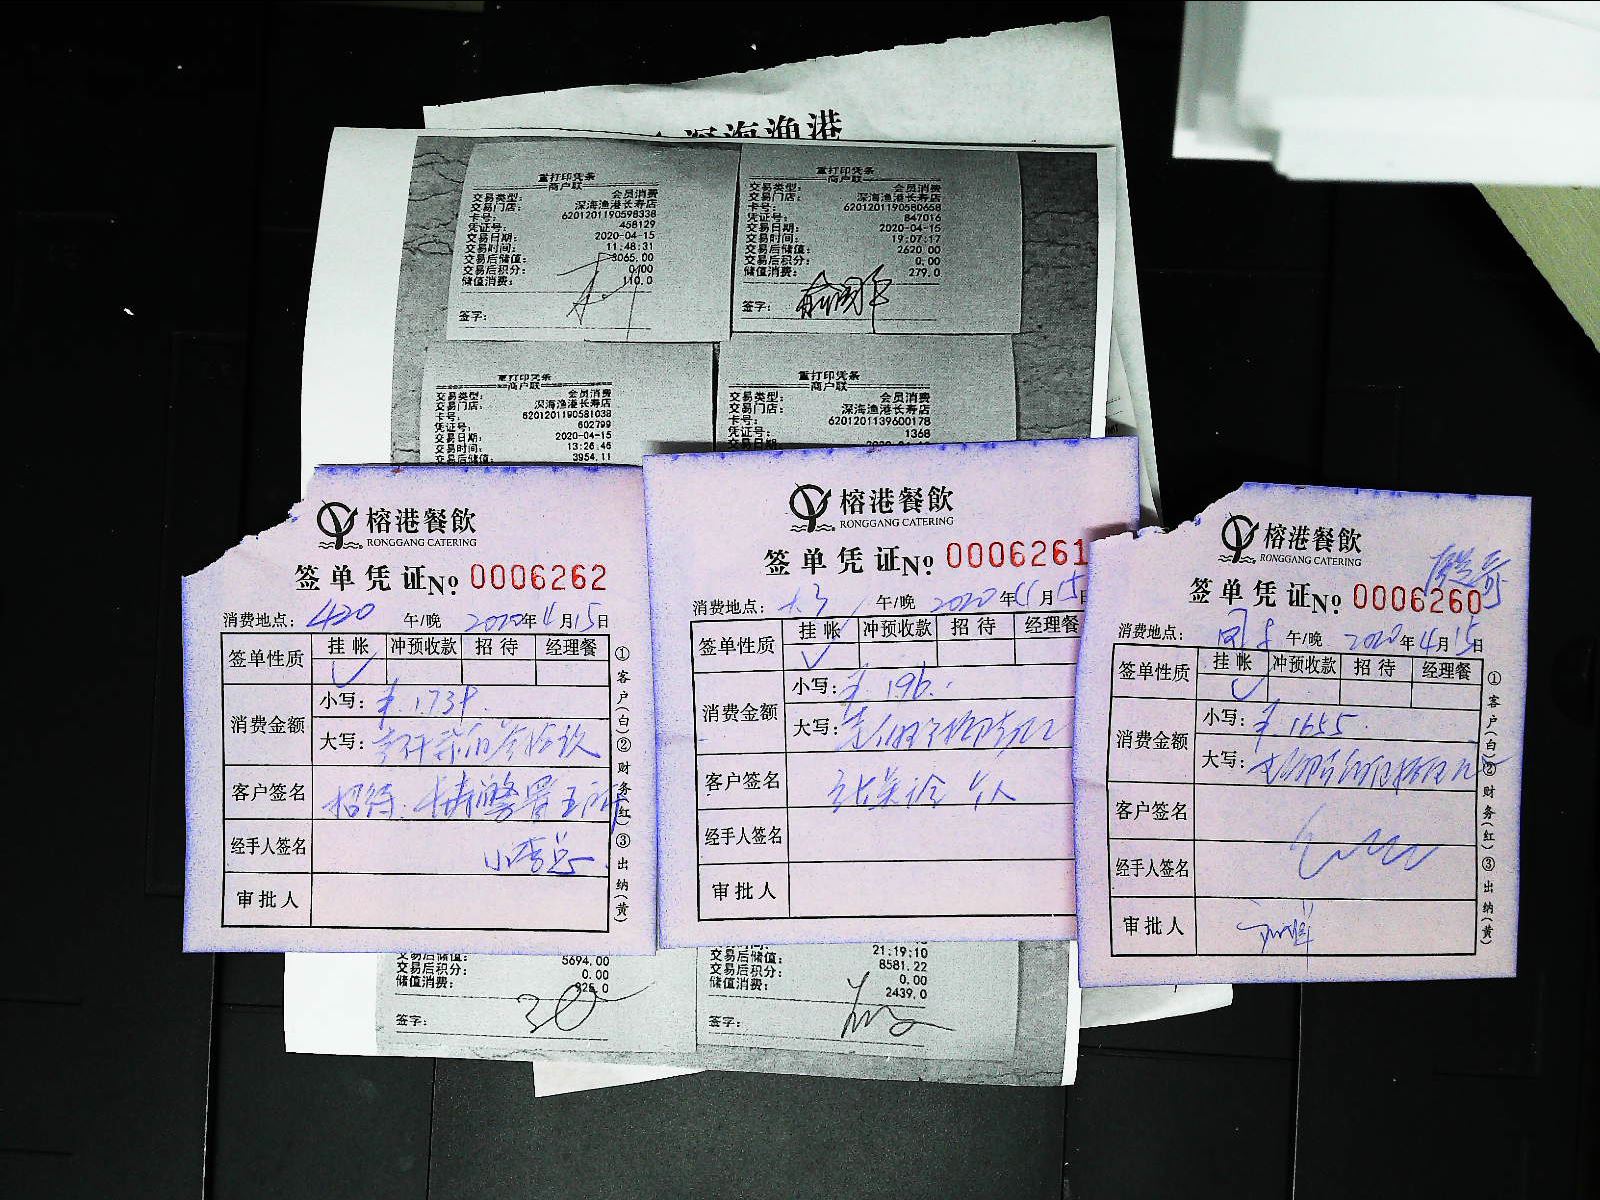 深海渔港
重打印凭条
商户联
交易类型: 会员消费
交易门店: 深海渔港长寿店
卡号: 6201201190598338
凭证号: 458129
交易日期: 2020-04-15
交易时间: 11:48:31
交易后储值: 3065.00
交易后积分: 0.00
储值消费: 110.0
签字:
重打印凭条
商户联
交易类型: 会员消费
交易门店: 深海渔港长寿店
卡号: 6201201190580658
凭证号: 847016
交易日期: 2020-04-15
交易时间: 19:07:17
交易后储值: 2620.00
交易后积分: 0.00
储值消费: 279.0
签字:
重打印凭条
商户联
交易类型: 会员消费
交易门店: 深海渔港长寿店
卡号: 6201201190581038
凭证号: 602799
交易日期: 2020-04-15
交易时间: 13:26:46
交易后储值: 3954.11
重打印凭条
商户联
交易类型: 会员消费
交易门店: 深海渔港长寿店
卡号: 6201201139600178
凭证号: 1368
榕港餐飲
RONGGANG CATERING
签单凭证No 0006262
消费地点: 420 午/晚 2020年4月15日
签单性质 挂帐 冲预收款 招待 经理餐
消费金额 小写:
大写:
客户签名 招待:
经手人签名
审批人
①客户(白)②财务(红)③出纳(黄)
榕港餐飲
RONGGANG CATERING
签单凭证No 0006261
消费地点: 午/晚 2020年 月15日
签单性质 挂帐 冲预收款 招待 经理餐
消费金额 小写: ¥196.
大写:
客户签名
经手人签名
审批人
榕港餐飲
RONGGANG CATERING
签单凭证No 0006260
消费地点: 午/晚 2020年4月15日
签单性质 挂帐 冲预收款 招待 经理餐
消费金额 小写: ¥1655.
大写:
客户签名
经手人签名
审批人
①客户(白)②财务(红)③出纳(黄)
交易后储值: 5694.00
交易后积分: 0.00
储值消费: 925.0
签字:
21:19:10
交易后储值: 8581.22
交易后积分: 0.00
储值消费: 2439.0
签字: